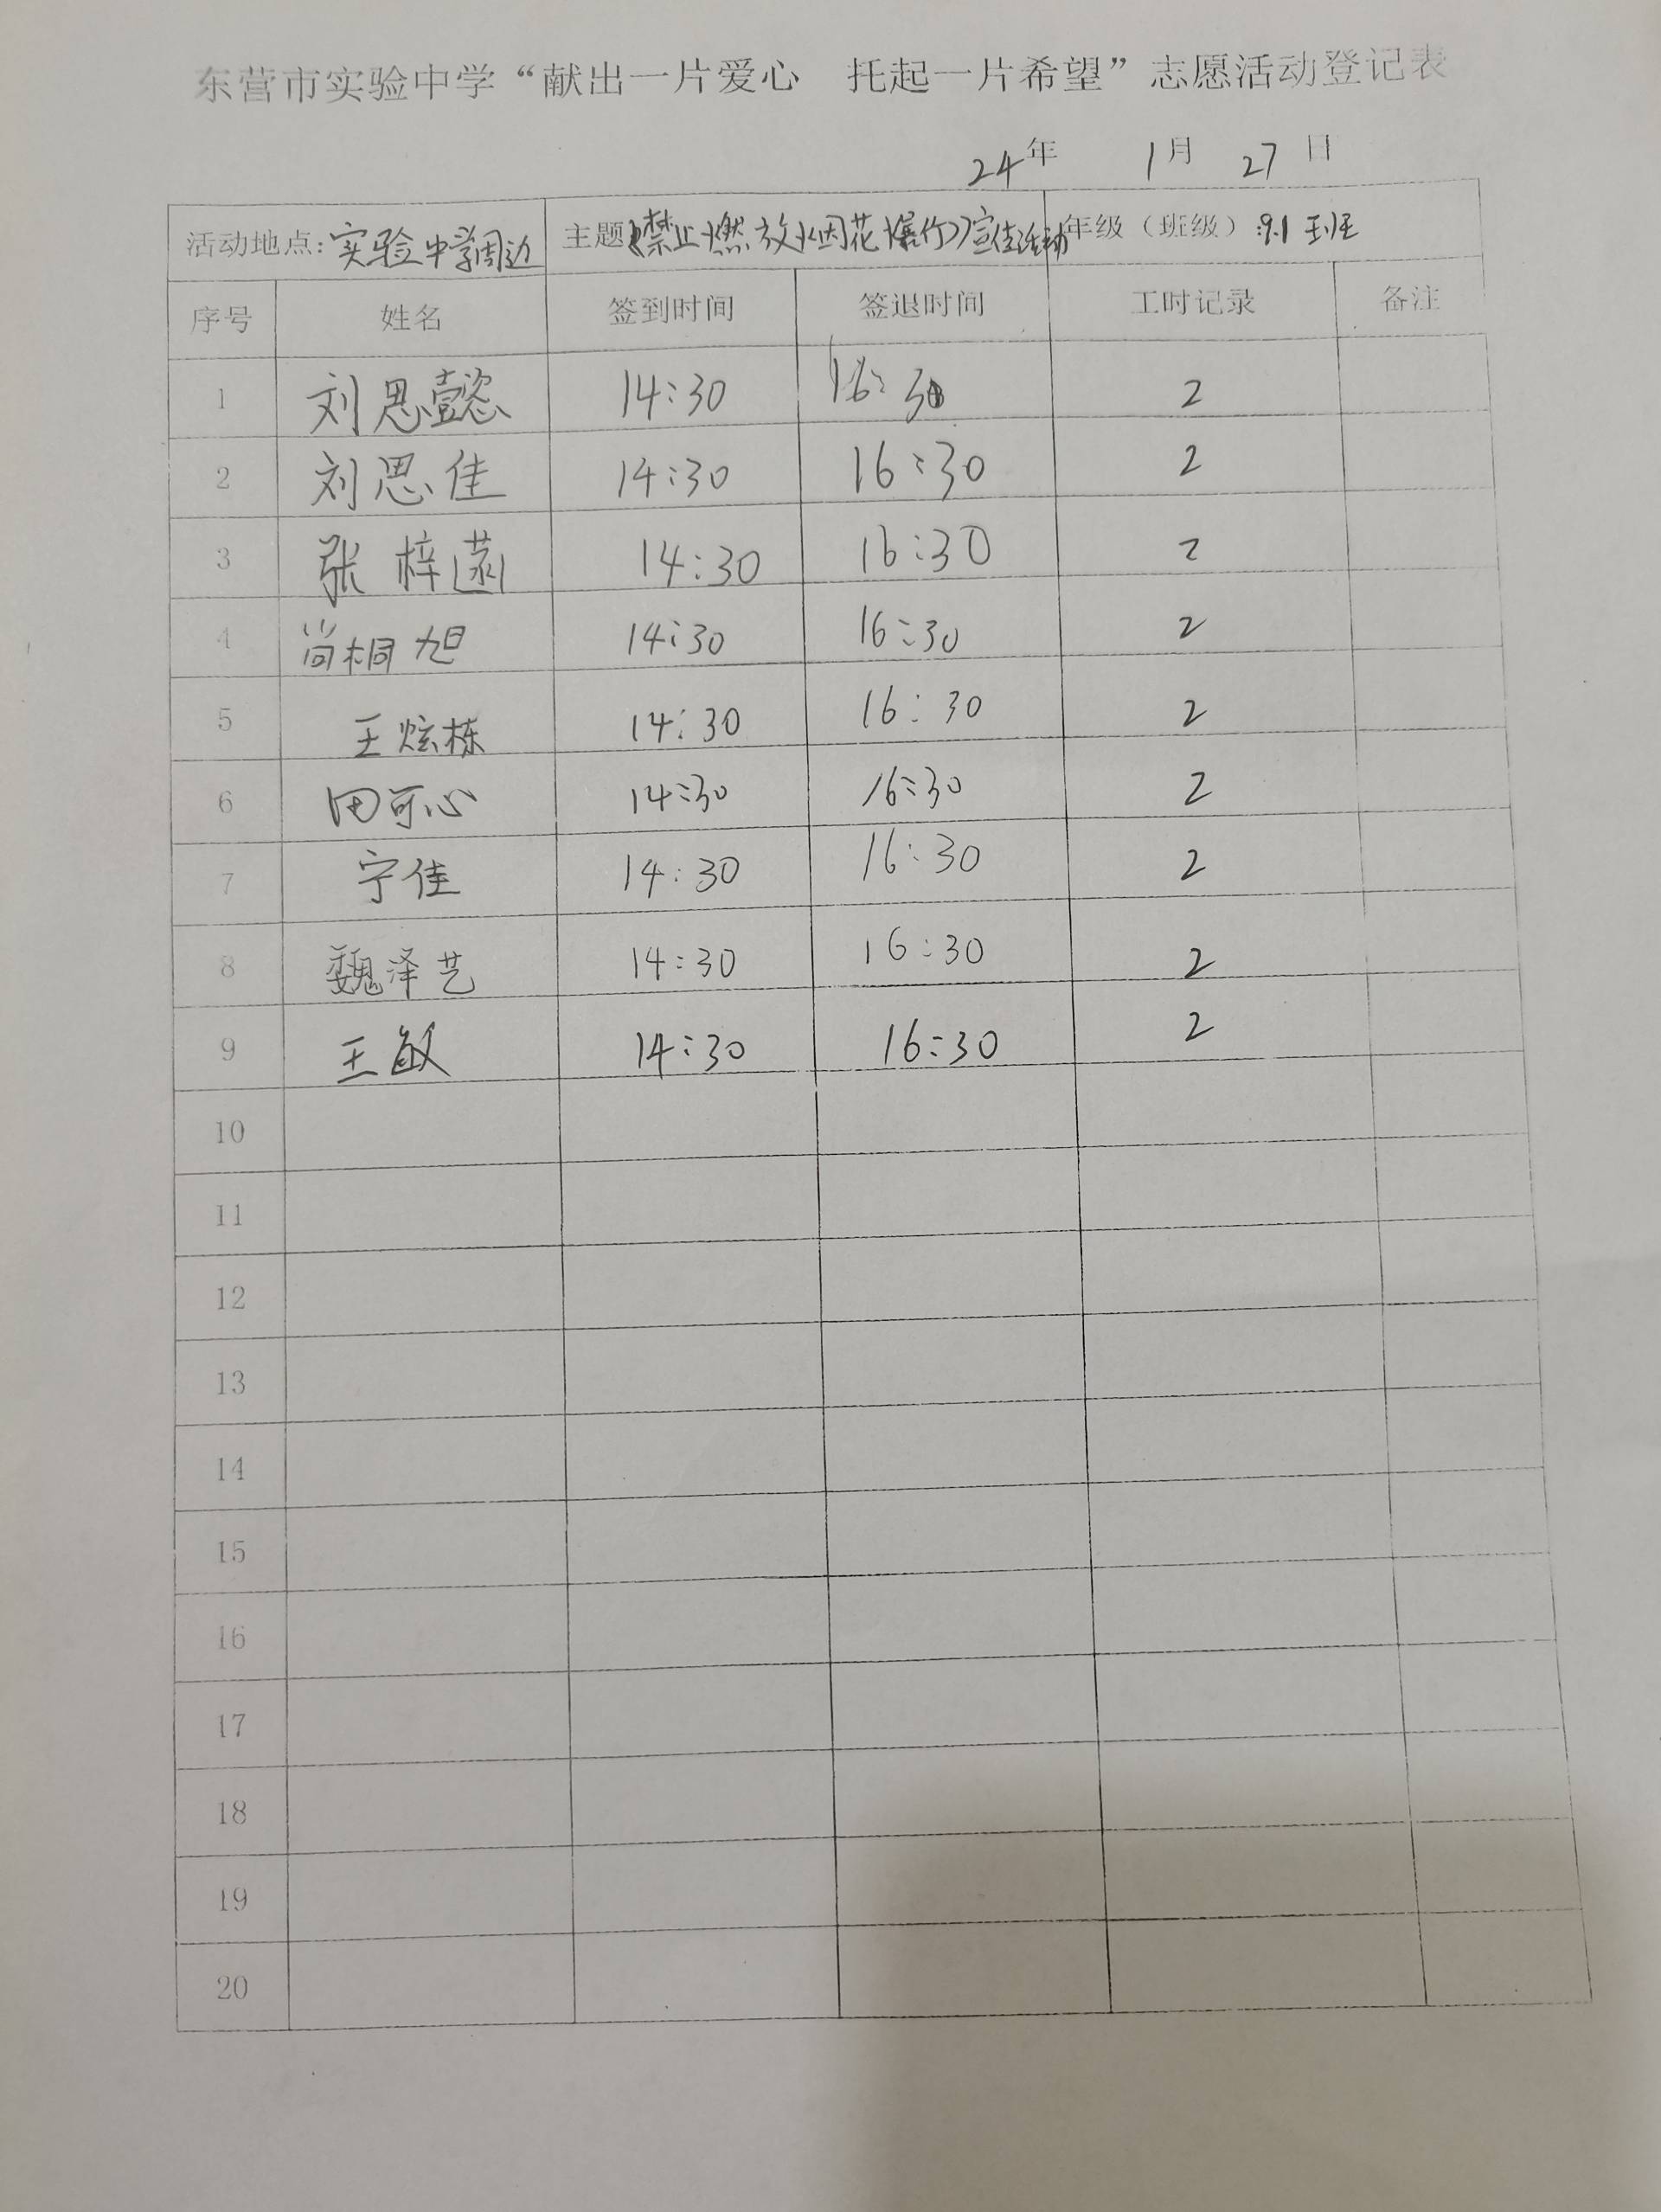 东营市实验中学“献出一片爱心 托起一片希望”志愿活动登记表
24年 1月 27日
活动地点:实验中学周边 主题《禁止燃放烟花爆竹》宣传活动 年级（班级）:9.1班
序号 姓名 签到时间 签退时间 工时记录 备注
1 刘思懿 14:30 16:30 2
2 刘思佳 14:30 16:30 2
3 张梓菡 14:30 16:30 2
4 尚桐旭 14:30 16:30 2
5 王炫栋 14:30 16:30 2
6 田可心 14:30 16:30 2
7 宁佳 14:30 16:30 2
8 魏泽艺 14:30 16:30 2
9 王敏 14:30 16:30 2
10
11
12
13
14
15
16
17
18
19
20